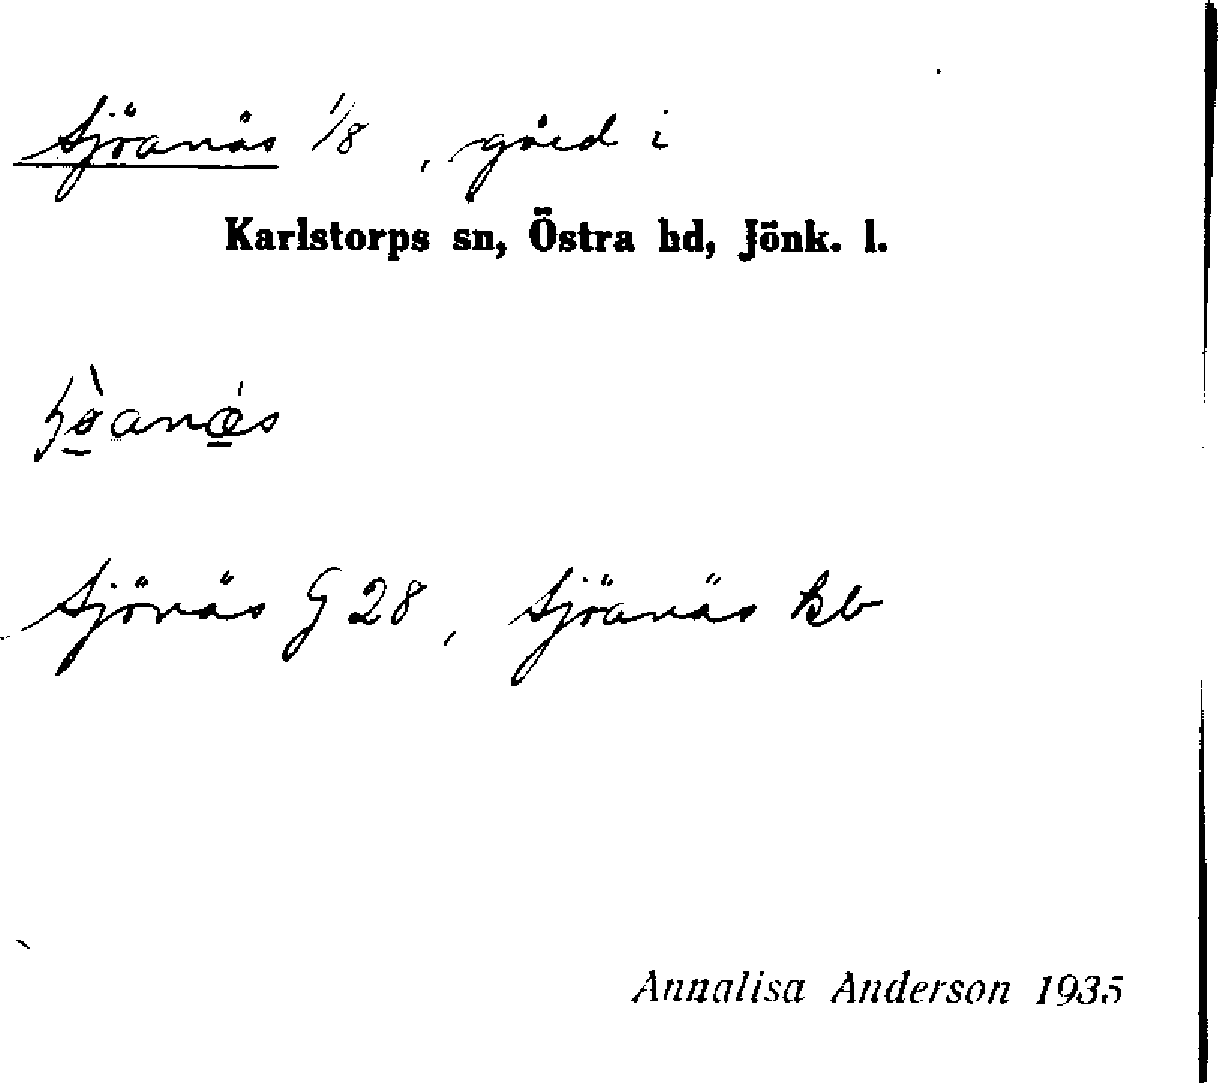 Sjöanäs 1/8, gård i
Karlstorps sn, Östra hd, Jönk. l.
Sjönäs G 28, Sjöanäs kb
Annalisa Anderson 1935